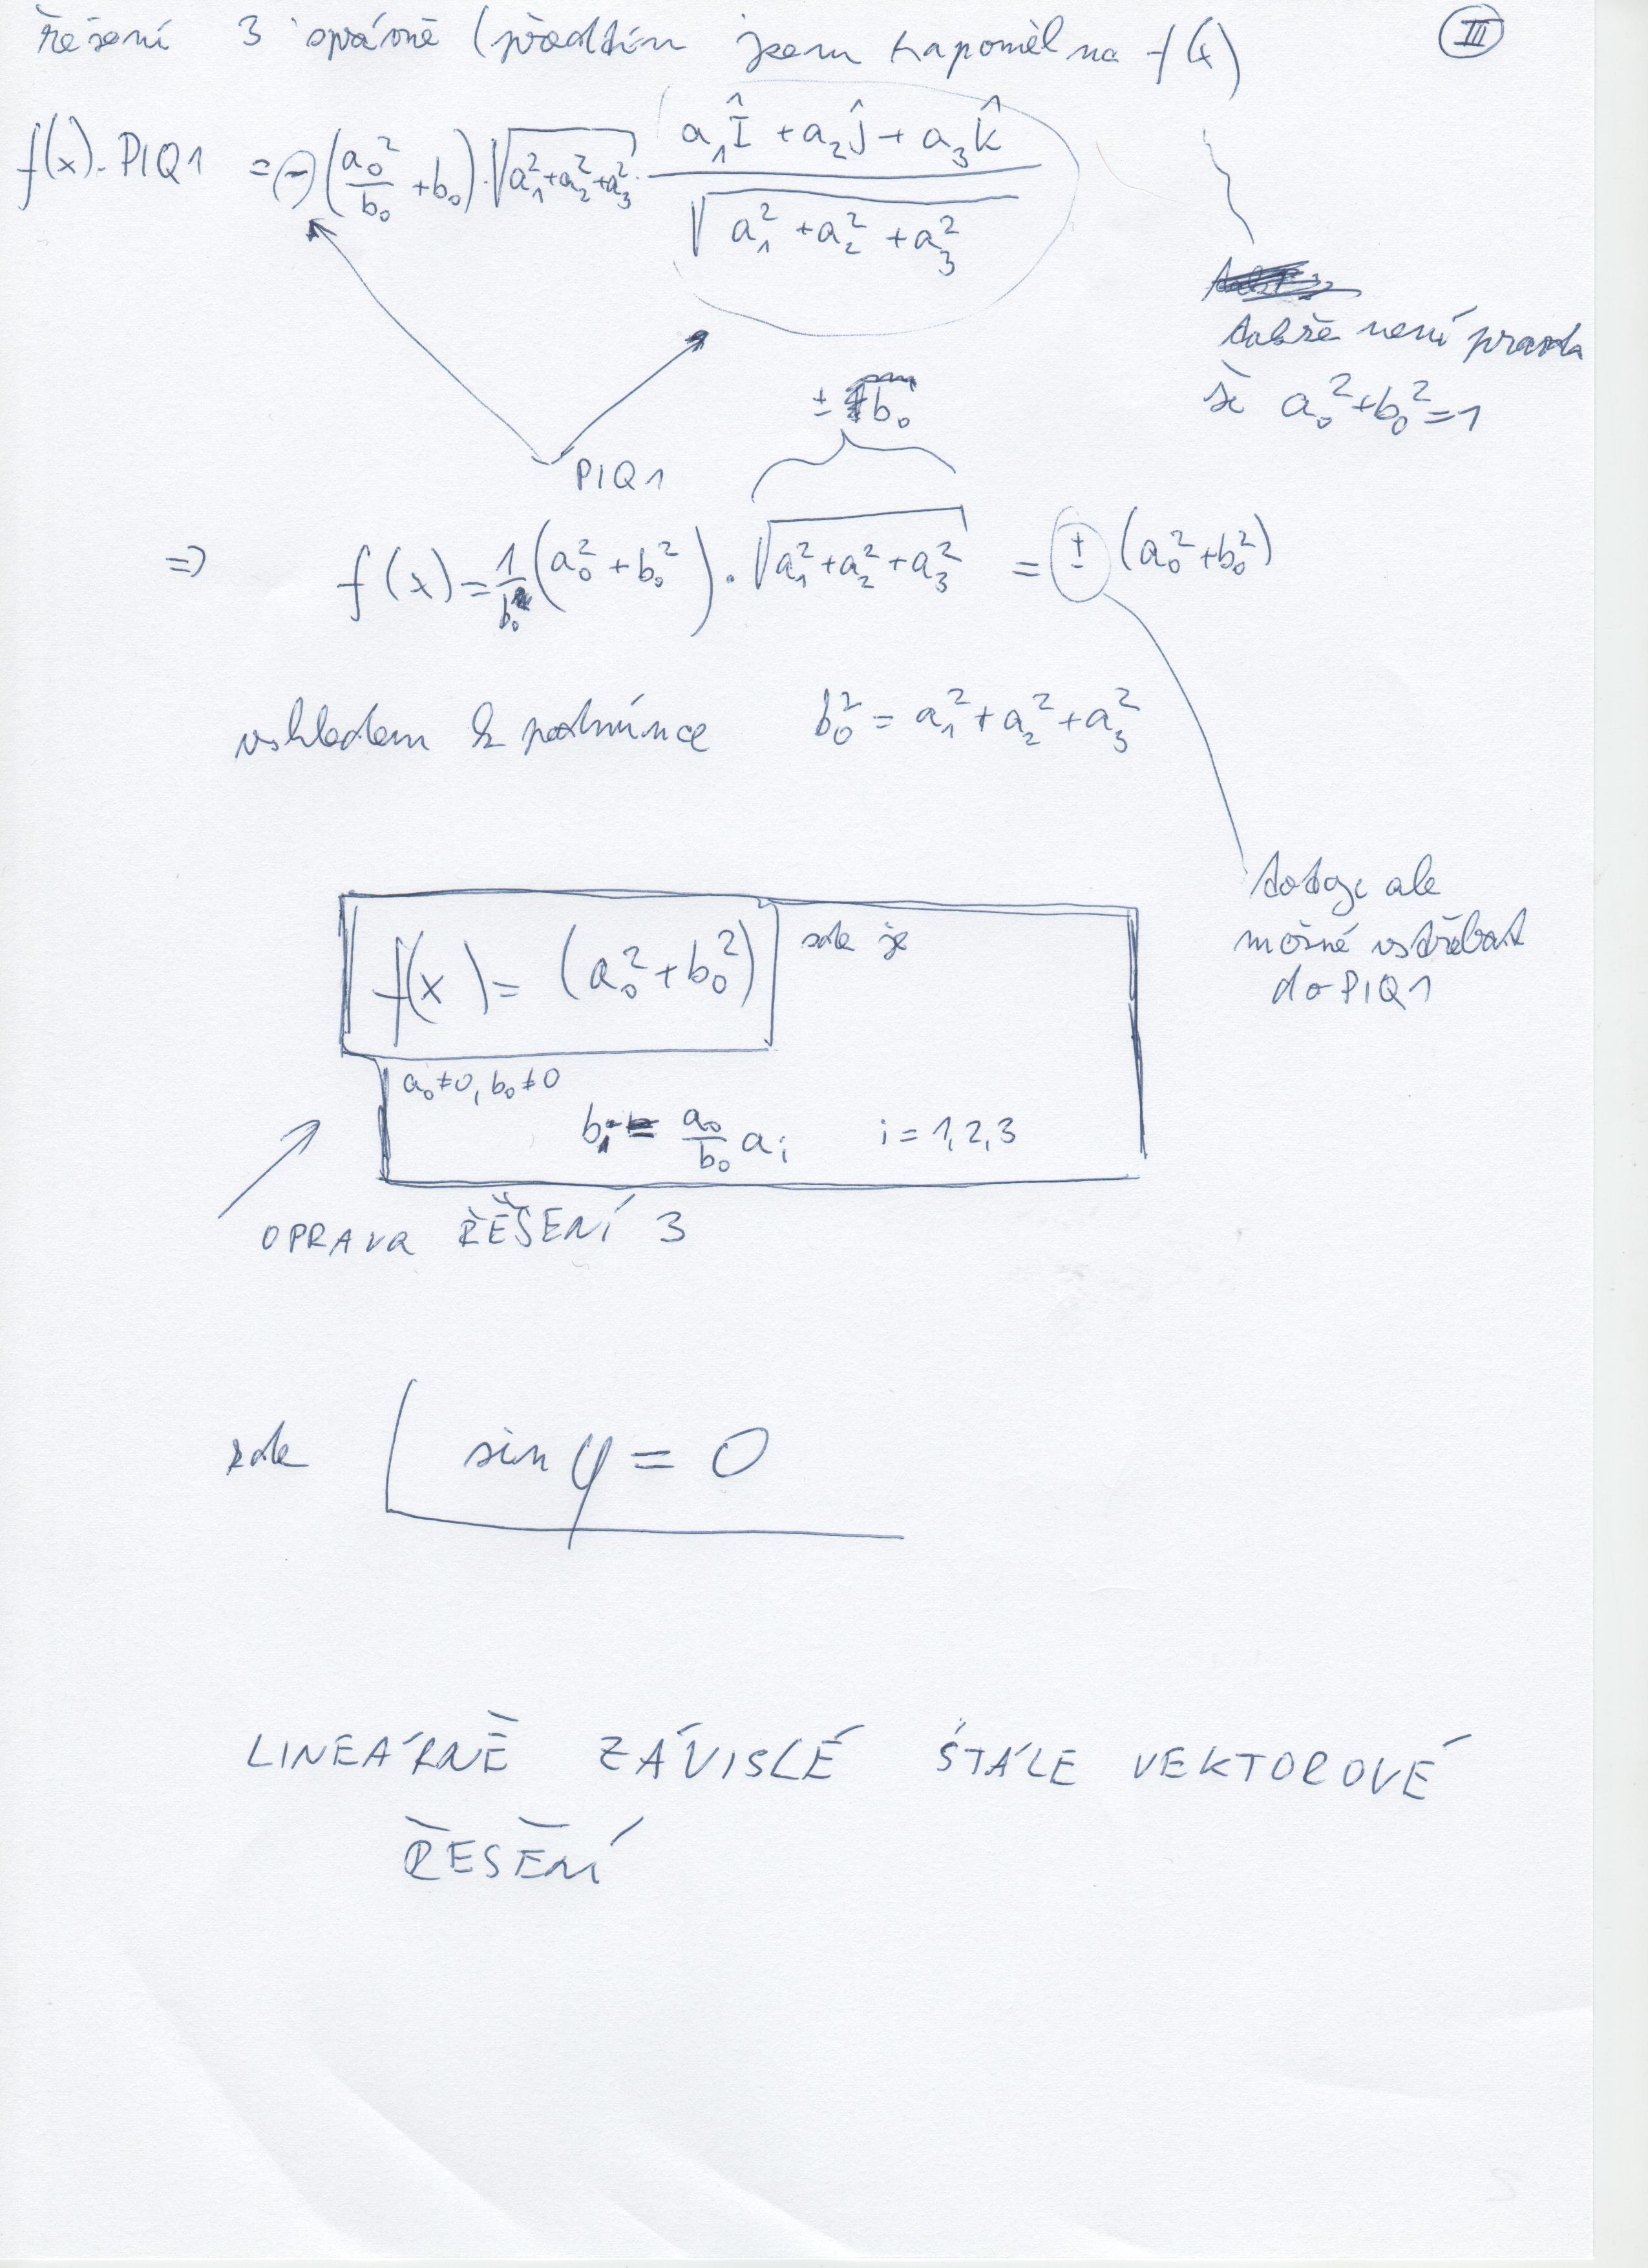 řešení 3 správně (předtím jsem zapoměl na f(x) III
f(x)·PIQ1 = (-) (a₀²/b₀ + b₀)·√(a₁²+a₂²+a₃²) · (a₁Î + a₂Ĵ + a₃k̂)/√(a₁²+a₂²+a₃²)
takže není pravda
že a₀²+b₀²=1
± b₀
PIQ1
⇒ f(x) = 1/b₀ (a₀²+b₀²)·√(a₁²+a₂²+a₃²) = ± (a₀²+b₀²)
vzhledem k podmínce b₀² = a₁²+a₂²+a₃²
toto je ale
možné vstřebat
do PIQ1
f(x) = (a₀²+b₀²) zde je
a₀≠0, b₀≠0
bᵢ = a₀/b₀ aᵢ i = 1,2,3
OPRAVA ŘĚŠENÍ 3
zde sin φ = 0
LINEÁRNĚ ZÁVISLÉ STÁLE VEKTOROVÉ
ŘEŠENÍ